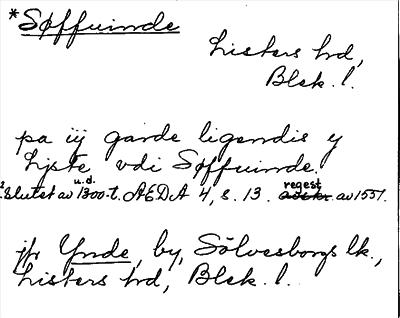 *Søffuinde
Listers hd,
Blek. l.
på iij gårde ligendis y
Lyste vdi Søffuinde.
u.d.
Slutet av 1300-t. ÆDA 4, s. 13. regest av 1551.
jfr Ynde, by, Sölvesborgs lk.,
Listers hd, Blek. l.